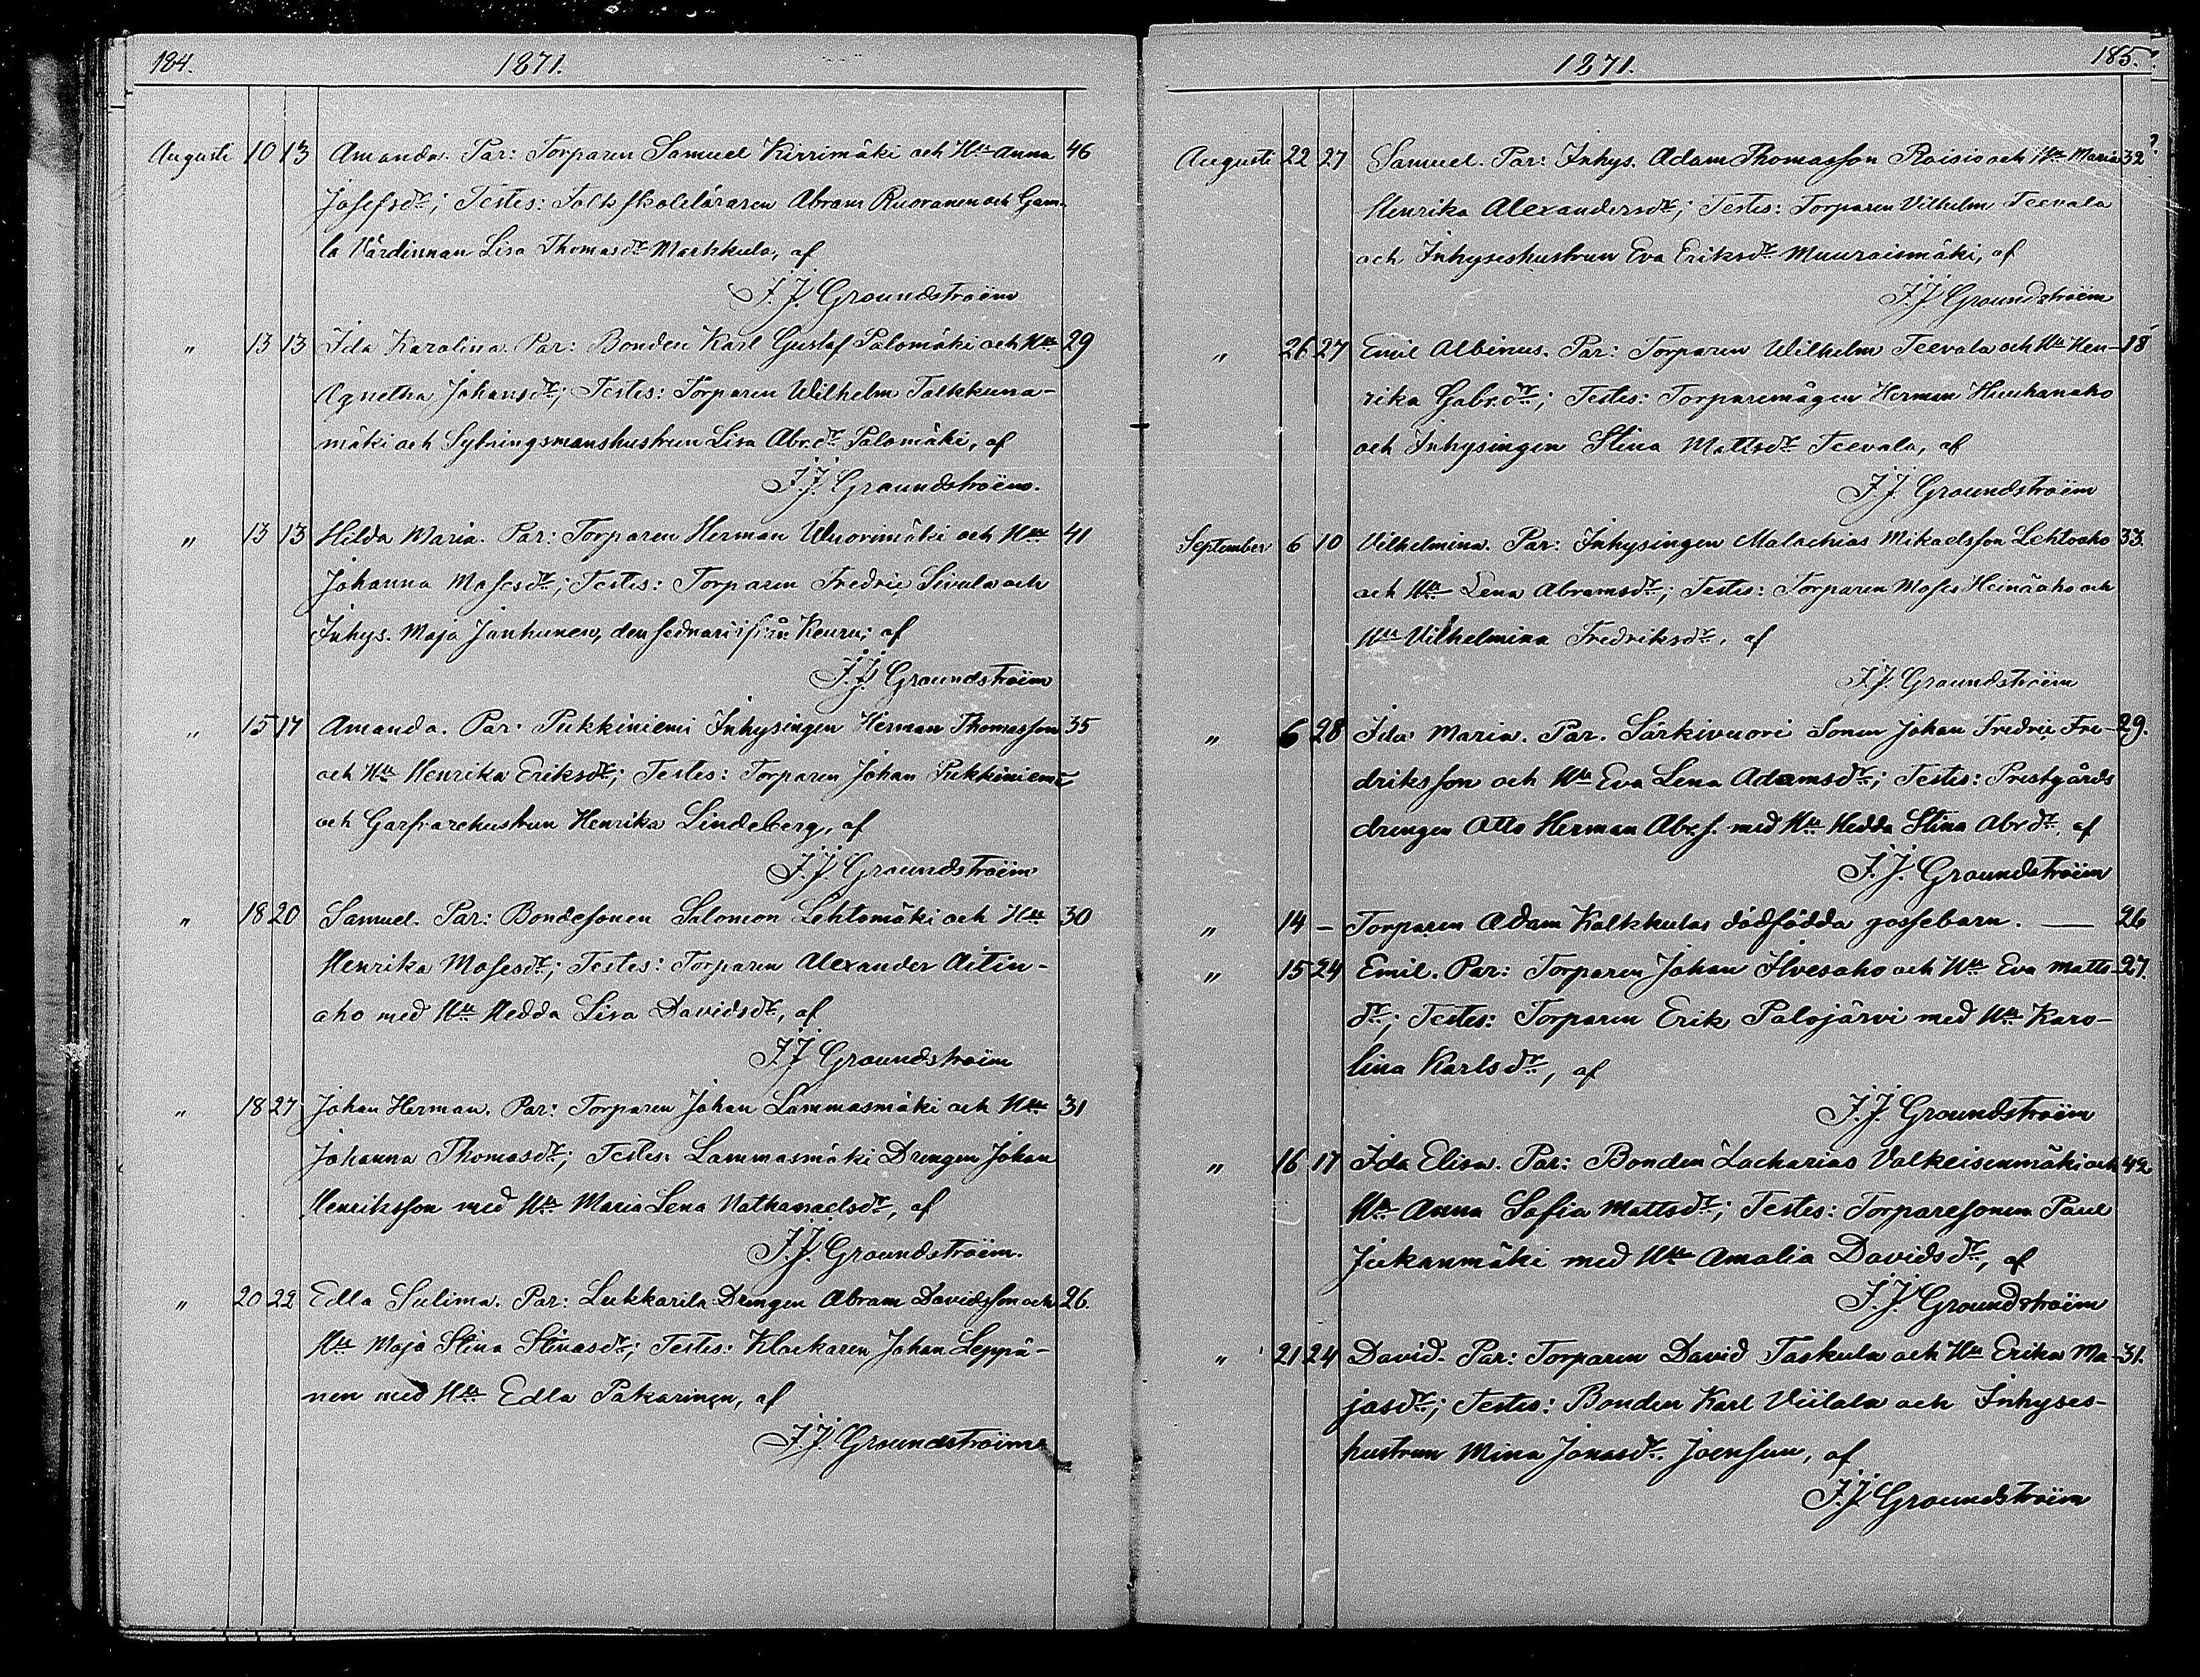 184.
1871.
Augusti 10 13 Amanda. Par: Torparen Samuel Kirrimäki och Hu Anna 46
Josefsdr; Testes: Folkskoleläraren Abram Ruoranen och Gam-
la Värdinnan Lisa Thomasdr Markkula, af
J.J. Groundstroëm
" 13 13 Ida Karolina. Par: Bonden Karl Gustaf Palomäki och Hu 29
Agnetha Johansdr; Testes: Torparen Wilhelm Talkkuna-
mäki och Sytningsmanshustrun Lisa Abr.dr Palomäki, af
J.J. Groundstroëm.
" 13 13 Hilda Maria. Par: Torparen Herman Wuorimäki och Hu 41
Johanna Mosesdr; Testes: Torparen Fredric Sivula och
Inhys. Maja Janhunen, den sednare ifrån Keuru; af
J.J. Groundstroëm
" 15 17 Amanda. Par: Pukkiniemi Inhysingen Herman Thomasson 35
och Hu Henrika Eriksdr; Testes: Torparen Johan Pukkiniemi
och Garfvarehustrun Henrika Lindeberg, af
J.J. Groundstroëm
" 18 20 Samuel. Par: Bondesonen Salomon Lehtomäki och Hu 30
Henrika Mosesdr; Testes: Torparen Alexander Aitin-
aho med Hu Hedda Lisa Davidsdr, af
J.J. Groundstroëm
" 18 27 Johan Herman. Par: Torparen Johan Lammasmäki och Hu 31
Johanna Thomasdr; Testes: Lammasmäki Drengen Johan
Henriksson med Hu Maria Lena Nathanaelsdr, af
J.J. Groundstroëm.
" 20 22 Edla Sulima. Par: Lukkarila Drengen Abram Davidsson och 26.
Hu Maja Stina Stinasdr; Testes: Klockaren Johan Leppä-
nen med Hu Edla Pakarinen, af
J.J. Groundstroëm
1871.
185.
Augusti 22 27 Samuel. Par: Inhys. Adam Thomasson Raisio och Hu Maria 32
Henrika Alexandersdr; Testes: Torparen Vilhelm Teevala
och Inhyseshustrun Eva Eriksdr Muuraismäki, af
J.J. Groundstroëm
" 26 27 Emil Albinus. Par: Torparen Wilhelm Teevala och Hu Hen- 18
rika Gabr.dr; Testes: Torparemågen Herman Huuhanaho
och Inhysingen Stina Mattsdr Teevala, af
J.J. Groundstroëm
September 6 10 Vilhelmina. Par: Inhysingen Malachias Mikaelsson Lehtoaho 33.
och Hu Lena Abramsdr; Testes: Torparen Moses Heinäaho och
Hu Vilhelmina Fredriksdr, af
J.J. Groundstroëm
" 6 28 Ida Maria. Par. Särkivuori Sonen Johan Fredric Fre- 29.
driksson och Hu Eva Lena Adamsdr; Testes: Prestgårds
drengen Otto Herman Abr.s. med Hu Hedda Stina Abr.dr, af
J.J. Groundstroëm
" 14 - Torparen Adam Kalkkulas dödfödda gossebarn. — 26
" 15 24 Emil. Par: Torparen Johan Ilvesaho och Hu Eva Matts- 27.
dr; Testes: Torparen Erik Palojärvi med Hu Karo-
lina Karlsdr, af
J.J. Groundstroëm
" 16 17 Ida Elisa. Par: Bonden Zacharias Valkeisenmäki och 42
Hu Anna Sofia Mattsdr; Testes: Torparesonen Paul
Jukanmäki med Hu Amalia Davidsdr, af
J.J. Groundstroëm
" 21 24 David. Par: Torparen David Taskula och Hu Erika Ma- 31.
jasdr; Testes: Bonden Karl Viilala och Inhyses-
hustrun Mina Jonasdr. Joensuu, af
J.J. Groundstroëm